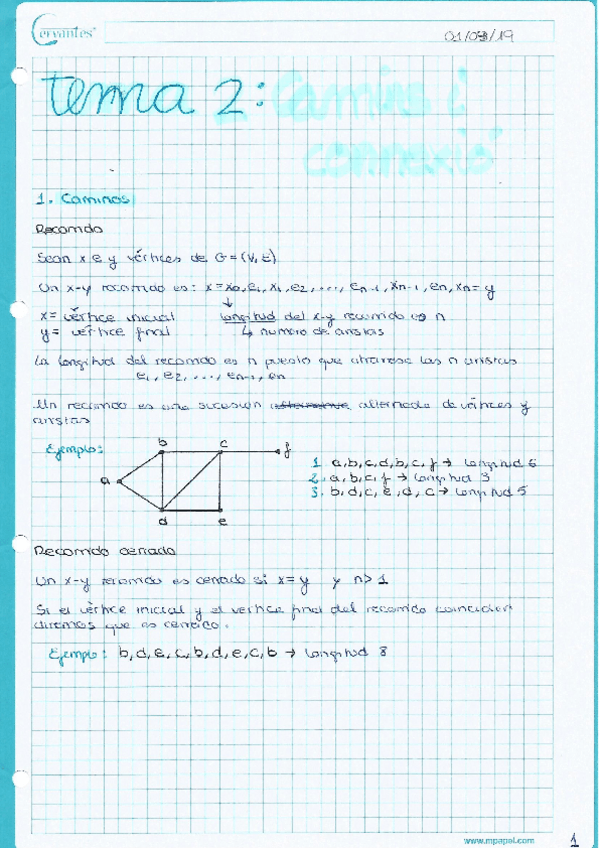 Cervantes
01/03/19
tema 2: Camins i
connexió
1. Caminos
Recorrido
Sean x e y vértices de G=(V,E)
Un x-y recorrido es: x=x₀,e₁,x₁,e₂,...,eₙ₋₁,xₙ₋₁,eₙ,xₙ=y
x= vértice inicial longitud del x-y recorrido es n
y= vértice final ↳ numero de aristas
La longitud del recorrido es n puesto que atraviesa las n aristas
e₁,e₂,...,eₙ₋₁,eₙ
Un recorrido es una sucesión alternada de vértices y
aristas
Ejemplo:
b c f
a
d e
1. a,b,c,d,b,c,f → longitud 6
2. a,b,c,f → longitud 3
3. b,d,c,e,d,c → longitud 5
Recorrido cerrado
Un x-y recorrido es cerrado si x=y y n>1
Si el vértice inicial y el vertice final del recorrido coinciden
diremos que es cerrado.
Ejemplo: b,d,e,c,b,d,e,c,b → longitud 8
www.mpapel.com
1